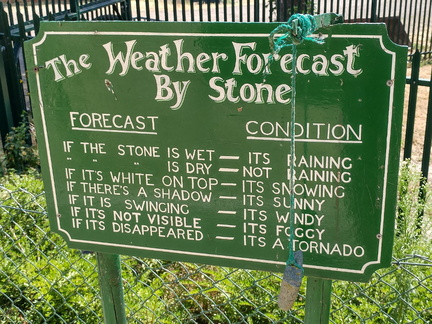 The Weather Forecast
By Stone
FORECAST CONDITION
IF THE STONE IS WET — ITS RAINING
" " " IS DRY — NOT RAINING
IF IT'S WHITE ON TOP — ITS SNOWING
IF THERE'S A SHADOW — ITS SUNNY
IF IT IS SWINGING — ITS WINDY
IF IT'S NOT VISIBLE — ITS FOGGY
IF ITS DISAPPEARED — ITS A TORNADO